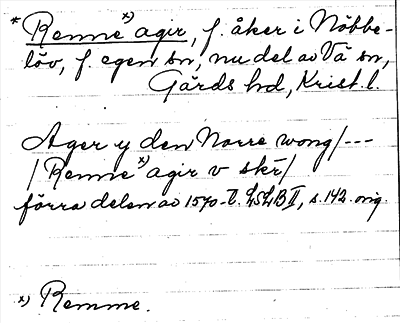 * Renne x) agir, f. åker i Nöbbe-
löv, f. egen sn, nu del av Vä sn,
Gärds hd, Krist. l.
Ager y den Norre wong/---
/Renne x) agir v skr/
förra delen av 1570-t. LSLB II, s. 142. orig.
x) Remme.